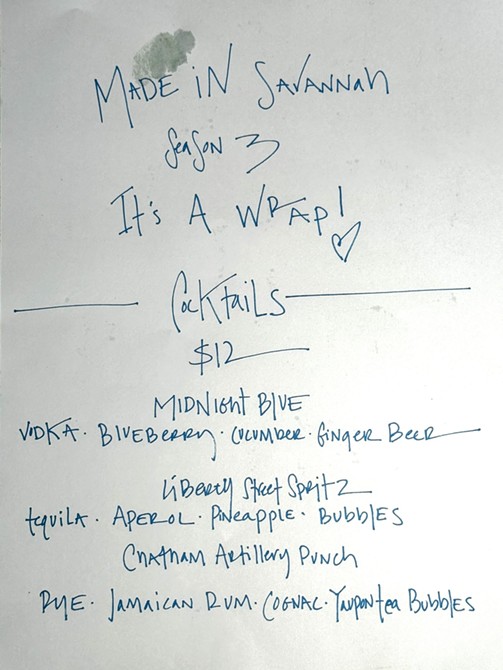 MADE iN SAVANNAh
SeaSON 3
It's A WRAp!
CocKtaiLs
$12
MIDNight BlVE
VODKA · BlVEBeRRy · cucumber · GiNger BeeR
LiBerty Street SpritZ
tequila · APEROL · Pineapple · BubblES
Chatham Artillery Punch
RyE · Jamaican RUM · COGNAC · Yaupon tea BubblES